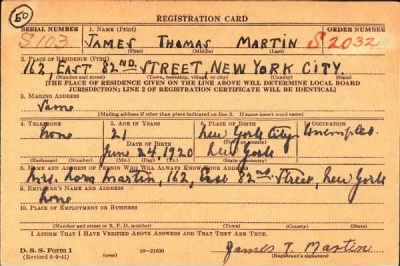 50
REGISTRATION CARD
SERIAL NUMBER 1. NAME (Print) ORDER NUMBER
S 103 JAMES THOMAS MARTIN S 2032
(First) (Middle) (Last)
2. PLACE OF RESIDENCE (Print)
162, EAST 82ND. STREET NEW YORK CITY
(Number and street) (Town, township, village, or city) (County) (State)
[THE PLACE OF RESIDENCE GIVEN ON THE LINE ABOVE WILL DETERMINE LOCAL BOARD
JURISDICTION; LINE 2 OF REGISTRATION CERTIFICATE WILL BE IDENTICAL]
3. MAILING ADDRESS
Same
[Mailing address if other than place indicated on line 2. If same insert word same]
4. TELEPHONE 5. AGE IN YEARS 6. PLACE OF BIRTH 7. OCCUPATION
none 21 New York City Unemployed.
DATE OF BIRTH (Town or county)
June 24, 1920 New York
(Exchange) (Number) (Mo.) (Day) (Yr.) (State or country)
8. NAME AND ADDRESS OF PERSON WHO WILL ALWAYS KNOW YOUR ADDRESS
Mrs. Rose Martin, 162, East 82nd Street, New York
9. EMPLOYER'S NAME AND ADDRESS
none
10. PLACE OF EMPLOYMENT OR BUSINESS
(Number and street or R. F. D. number) (Town) (County) (State)
I AFFIRM THAT I HAVE VERIFIED ABOVE ANSWERS AND THAT THEY ARE TRUE.
D. S. S. Form 1
(Revised 6-9-41) (over) 16-21630
James T. Martin
(Registrant's signature)